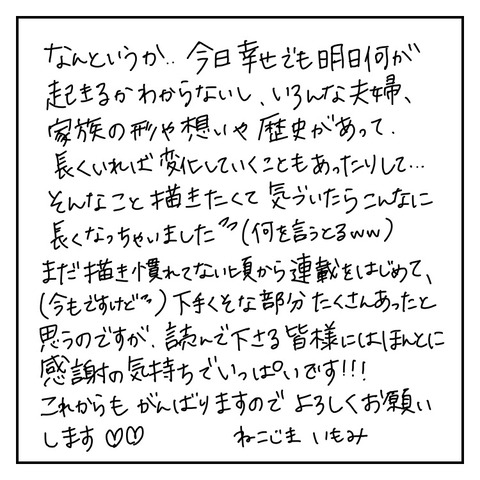 なんというか‥今日幸せでも明日何が
起きるかわからないし、いろんな夫婦、
家族の形や想いや歴史があって、
長くいれば変化していくこともあったりして…
そんなこと描きたくて気づいたらこんなに
長くなっちゃいました(何を言うとるww)
まだ描き慣れてない頃から連載をはじめて、
(今もですけど)下手くそな部分たくさんあったと
思うのですが、読んで下さる皆様にはほんとに
感謝の気持ちでいっぱいです!!!
これからもがんばりますのでよろしくお願い
します♡♡ ねこじま いもみ